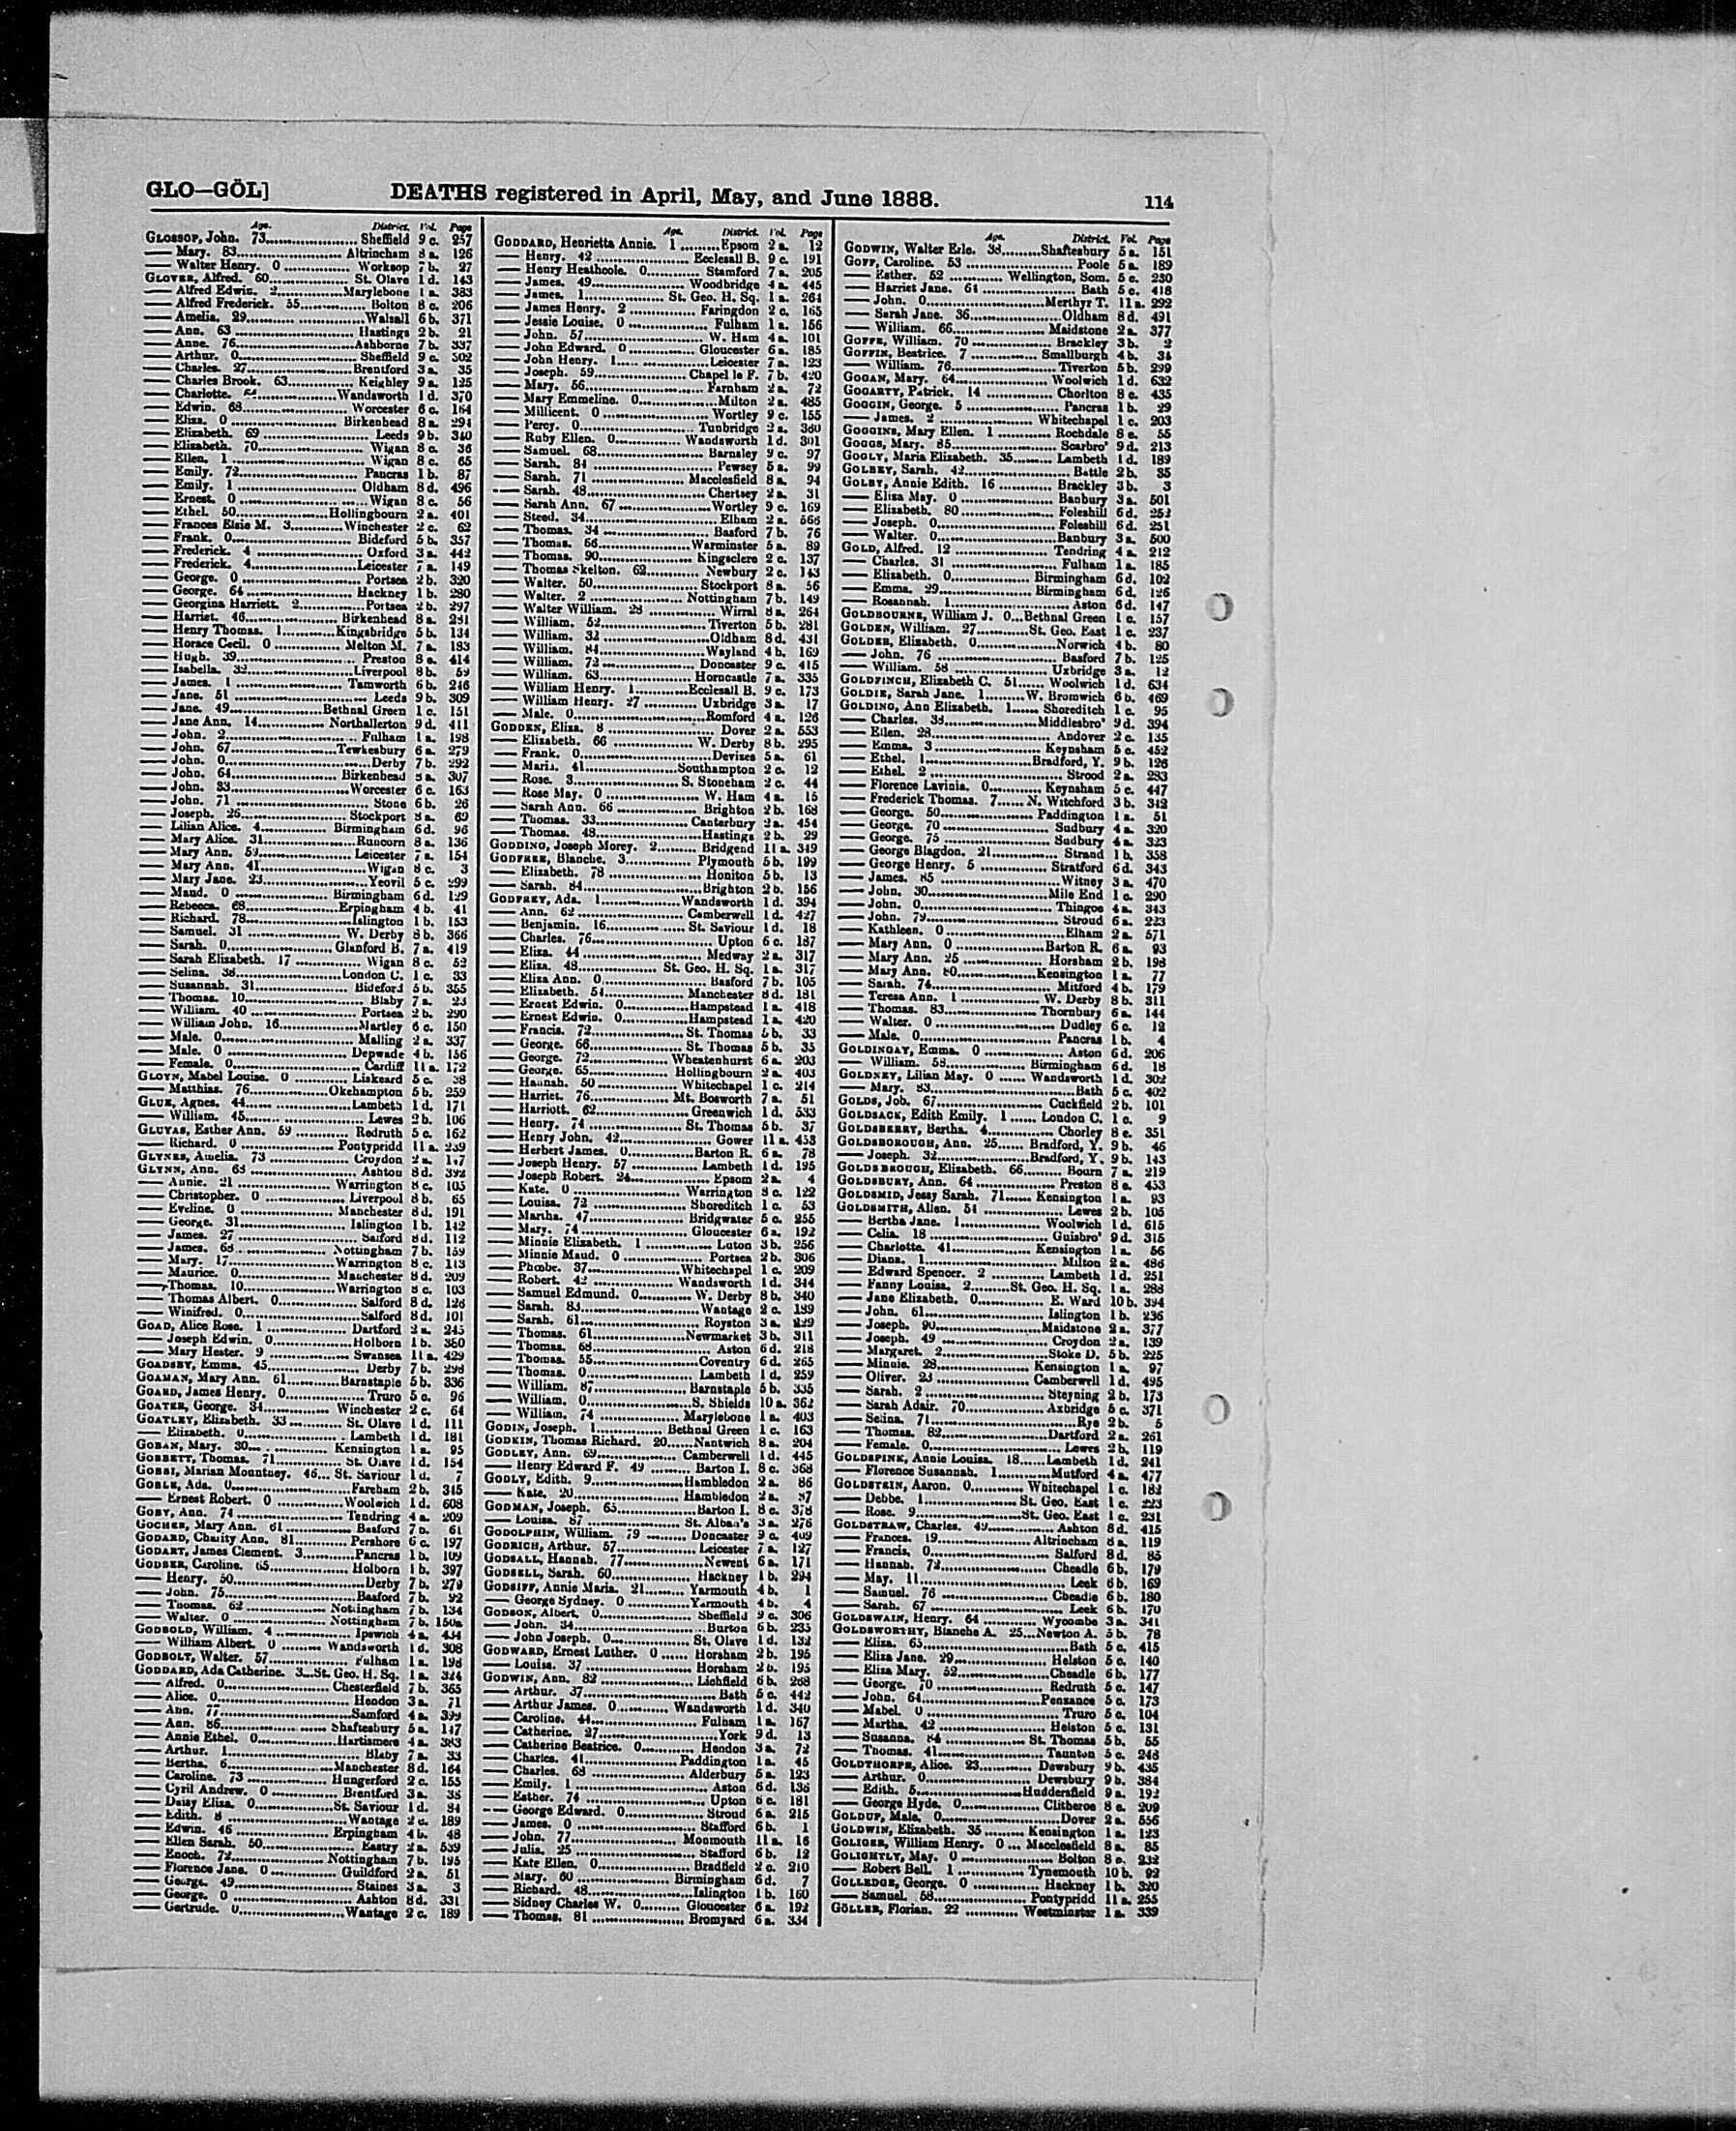 GLO—GÖL]
DEATHS registered in April, May, and June 1888.
114
Age. District. Vol. Page
GLOSSOP, John. 73 Sheffield 9 c. 257
— Mary. 83 Altrincham 8 a. 126
— Walter Henry. 0 Worksop 7 b. 27
GLOVER, Alfred. 60 St. Olave 1 d. 143
— Alfred Edwin. 2 Marylebone 1 a. 383
— Alfred Frederick. 55 Bolton 8 c. 206
— Amelia. 29 Walsall 6 b. 371
— Ann. 63 Hastings 2 b. 21
— Anne. 76 Ashborne 7 b. 337
— Arthur. 0 Sheffield 9 c. 302
— Charles. 27 Brentford 3 a. 35
— Charles Brook. 63 Keighley 9 a. 125
— Charlotte. Wandsworth 1 d. 370
— Edwin. 68 Worcester 6 c. 164
— Eliza. 0 Birkenhead 8 a. 294
— Elizabeth. 69 Leeds 9 b. 340
— Elizabeth. 70 Wigan 8 c. 36
— Ellen. 1 Wigan 8 c. 65
— Emily. 72 Pancras 1 b. 87
— Emily. 1 Oldham 8 d. 496
— Ernest. 0 Wigan 8 c. 56
— Ethel. 50 Hollingbourn 2 a. 401
— Frances Elsie M. 3 Winchester 2 c. 62
— Frank. 0 Bideford 5 b. 357
— Frederick. 4 Oxford 3 a. 442
— Frederick. 4 Leicester 7 a. 149
— George. 0 Portsea 2 b. 320
— George. 64 Hackney 1 b. 280
— Georgina Harriett. 2 Portsea 2 b. 297
— Harriet. 46 Birkenhead 8 a. 281
— Henry Thomas. 1 Kingsbridge 5 b. 134
— Horace Cecil. 0 Melton M. 7 a. 183
— Hugh. 39 Preston 8 e. 414
— Isabella. 32 Liverpool 8 b. 59
— James. 1 Tamworth 6 b. 246
— Jane. 51 Leeds 9 b. 309
— Jane. 49 Bethnal Green 1 c. 151
— Jane Ann. 14 Northallerton 9 d. 411
— John. 2 Fulham 1 a. 198
— John. 67 Tewkesbury 6 a. 279
— John. 0 Derby 7 b. 292
— John. 64 Birkenhead 8 a. 307
— John. 33 Worcester 6 c. 163
— John. 71 Stone 6 b. 26
— Joseph. 25 Stockport 8 a. 69
— Lilian Alice. 4 Birmingham 6 d. 96
— Mary Alice. 31 Runcorn 8 a. 136
— Mary Ann. 53 Leicester 7 a. 154
— Mary Ann. 41 Wigan 8 c. 3
— Mary Jane. 23 Yeovil 5 c. 299
— Maud. 0 Birmingham 6 d. 129
— Rebecca. 68 Erpingham 4 b. 41
— Richard. 78 Islington 1 b. 153
— Samuel. 31 W. Derby 8 b. 366
— Sarah. 0 Glanford B. 7 a. 419
— Sarah Elizabeth. 17 Wigan 8 c. 52
— Selina. 38 London C. 1 c. 33
— Susannah. 31 Bideford 5 b. 355
— Thomas. 10 Blaby 7 a. 23
— William. 40 Portsea 2 b. 290
— William John. 16 Martley 6 c. 150
— Male. 0 Malling 2 a. 337
— Male. 0 Depwade 4 b. 156
— Female. 0 Cardiff 11 a. 172
GLOYN, Mabel Louise. 0 Liskeard 5 c. 38
— Matthias. 76 Okehampton 5 b. 259
GLUE, Agnes. 44 Lambeth 1 d. 171
— William. 45 Lewes 2 b. 106
GLUYAS, Esther Ann. 59 Redruth 5 c. 162
— Richard. 0 Pontypridd 11 a. 239
GLYNES, Amelia. 73 Croydon 2 a. 147
GLYNN, Ann. 63 Ashton 8 d. 392
— Annie. 21 Warrington 8 c. 105
— Christopher. 0 Liverpool 8 b. 65
— Eveline. 0 Manchester 8 d. 191
— George. 31 Islington 1 b. 142
— James. 27 Salford 8 d. 112
— James. 63 Nottingham 7 b. 159
— Mary. 17 Warrington 8 c. 113
— Maurice. 0 Manchester 8 d. 209
— Thomas. 10 Warrington 8 c. 103
— Thomas Albert. 0 Salford 8 d. 126
— Winifred. 0 Salford 8 d. 101
GOAD, Alice Rose. 1 Dartford 2 a. 245
— Joseph Edwin. 0 Holborn 1 b. 380
— Mary Hester. 9 Swansea 11 a. 429
GOADSBY, Emma. 45 Derby 7 b. 298
GOAMAN, Mary Ann. 61 Barnstaple 5 b. 336
GOARD, James Henry. 0 Truro 5 c. 96
GOATER, George. 34 Winchester 2 c. 64
GOATLEY, Elizabeth. 33 St. Olave 1 d. 111
— Elizabeth. 0 Lambeth 1 d. 181
GOBAN, Mary. 30 Kensington 1 a. 95
GOBBETT, Thomas. 71 St. Olave 1 d. 154
GOBBI, Marian Mountney. 46 St. Saviour 1 d. 7
GOBLE, Ada. 0 Fareham 2 b. 315
— Ernest Robert. 0 Woolwich 1 d. 608
GOBY, Ann. 74 Tendring 4 a. 209
GOCHER, Mary Ann. 61 Basford 7 b. 61
GODARD, Charity Ann. 81 Pershore 6 c. 197
GODART, James Clement. 3 Pancras 1 b. 109
GODBER, Caroline. 65 Holborn 1 b. 397
— Henry. 50 Derby 7 b. 279
— John. 75 Basford 7 b. 92
— Thomas. 62 Nottingham 7 b. 134
— Walter. 0 Nottingham 7 b. 150a
GODBOLD, William. 4 Ipswich 4 a. 434
— William Albert. 0 Wandsworth 1 d. 308
GODBOLT, Walter. 57 Fulham 1 a. 198
GODDARD, Ada Catherine. 3 St. Geo. H. Sq. 1 a. 324
— Alfred. 0 Chesterfield 7 b. 365
— Alice. 0 Hendon 3 a. 71
— Ann. 77 Samford 4 a. 399
— Ann. 86 Shaftesbury 5 a. 147
— Annie Ethel. 0 Hartismere 4 a. 383
— Arthur. 1 Blaby 7 a. 33
— Bertha. 6 Manchester 8 d. 164
— Caroline. 73 Hungerford 2 c. 155
— Cyril Andrew. 0 Brentford 3 a. 38
— Daisy Eliza. 0 St. Saviour 1 d. 84
— Edith. 8 Wantage 2 c. 189
— Edwin. 46 Erpingham 4 b. 48
— Ellen Sarah. 50 Eastry 2 a. 539
— Enoch. 72 Nottingham 7 b. 195
— Florence Jane. 0 Guildford 2 a. 51
— George. 49 Staines 3 a. 3
— George. 0 Ashton 8 d. 331
— Gertrude. 0 Wantage 2 c. 189
Age. District. Vol. Page
GODDARD, Henrietta Annie. 1 Epsom 2 a. 12
— Henry. 42 Ecclesall B. 9 c. 191
— Henry Heathcole. 0 Stamford 7 a. 205
— James. 49 Woodbridge 4 a. 445
— James. 1 St. Geo. H. Sq. 1 a. 264
— James Henry. 2 Faringdon 2 c. 165
— Jessie Louise. 0 Fulham 1 a. 156
— John. 57 W. Ham 4 a. 101
— John Edward. 0 Gloucester 6 a. 185
— John Henry. 1 Leicester 7 a. 123
— Joseph. 59 Chapel le F. 7 b. 420
— Mary. 56 Farnham 2 a. 72
— Mary Emmeline. 0 Milton 2 a. 485
— Millicent. 0 Wortley 9 c. 155
— Percy. 0 Tunbridge 2 a. 360
— Ruby Ellen. 0 Wandsworth 1 d. 301
— Samuel. 68 Barnsley 9 c. 97
— Sarah. 84 Pewsey 5 a. 99
— Sarah. 71 Macclesfield 8 a. 94
— Sarah. 48 Chertsey 2 a. 31
— Sarah Ann. 67 Wortley 9 c. 169
— Steed. 34 Elham 2 a. 566
— Thomas. 34 Basford 7 b. 76
— Thomas. 66 Warminster 5 a. 89
— Thomas. 90 Kingsclere 2 c. 137
— Thomas Skelton. 62 Newbury 2 c. 143
— Walter. 50 Stockport 8 a. 56
— Walter. 2 Nottingham 7 b. 149
— Walter William. 28 Wirral 8 a. 264
— William. 52 Tiverton 5 b. 281
— William. 32 Oldham 8 d. 431
— William. 84 Wayland 4 b. 169
— William. 72 Doncaster 9 c. 415
— William. 63 Horncastle 7 a. 335
— William Henry. 1 Ecclesall B. 9 c. 173
— William Henry. 27 Uxbridge 3 a. 17
— Male. 0 Romford 4 a. 126
GODDEN, Eliza. 8 Dover 2 a. 553
— Elizabeth. 66 W. Derby 8 b. 295
— Frank. 0 Devizes 5 a. 61
— Maria. 41 Southampton 2 c. 12
— Rose. 3 S. Stoneham 2 c. 44
— Rose May. 0 W. Ham 4 a. 15
— Sarah Ann. 66 Brighton 2 b. 168
— Thomas. 33 Canterbury 2 a. 454
— Thomas. 48 Hastings 2 b. 29
GODDING, Joseph Morey. 2 Bridgend 11 a. 349
GODFREE, Blanche. 3 Plymouth 5 b. 199
— Elizabeth. 78 Honiton 5 b. 13
— Sarah. 84 Brighton 2 b. 156
GODFREY, Ada. 1 Wandsworth 1 d. 394
— Ann. 62 Camberwell 1 d. 427
— Benjamin. 16 St. Saviour 1 d. 18
— Charles. 76 Upton 6 c. 187
— Eliza. 44 Medway 2 a. 317
— Eliza. 48 St. Geo. H. Sq. 1 a. 317
— Eliza Ann. 0 Basford 7 b. 105
— Elizabeth. 54 Manchester 8 d. 181
— Ernest Edwin. 0 Hampstead 1 a. 418
— Ernest Edwin. 0 Hampstead 1 a. 420
— Francis. 72 St. Thomas 5 b. 33
— George. 66 St. Thomas 5 b. 35
— George. 72 Wheatenhurst 6 a. 203
— George. 65 Hollingbourn 2 a. 403
— Hannah. 50 Whitechapel 1 c. 214
— Harriet. 76 Mt. Bosworth 7 a. 51
— Harriott. 62 Greenwich 1 d. 533
— Henry. 74 St. Thomas 5 b. 37
— Henry John. 42 Gower 11 a. 453
— Herbert James. 0 Barton R. 6 a. 78
— Joseph Henry. 57 Lambeth 1 d. 195
— Joseph Robert. 24 Epsom 2 a. 4
— Kate. 0 Warrington 8 c. 122
— Louisa. 72 Shoreditch 1 c. 53
— Martha. 47 Bridgwater 5 c. 255
— Mary. 74 Gloucester 6 a. 192
— Minnie Elizabeth. 1 Luton 3 b. 256
— Minnie Maud. 0 Portsea 2 b. 306
— Phœbe. 37 Whitechapel 1 c. 209
— Robert. 42 Wandsworth 1 d. 344
— Samuel Edmund. 0 W. Derby 8 b. 340
— Sarah. 83 Wantage 2 c. 189
— Sarah. 61 Royston 3 a. 229
— Thomas. 61 Newmarket 3 b. 311
— Thomas. 68 Aston 6 d. 218
— Thomas. 55 Coventry 6 d. 265
— Thomas. 0 Lambeth 1 d. 259
— William. 87 Barnstaple 5 b. 335
— William. 0 S. Shields 10 a. 362
— William. 74 Marylebone 1 a. 403
GODIN, Joseph. 1 Bethnal Green 1 c. 163
GODKIN, Thomas Richard. 20 Nantwich 8 a. 204
GODLEY, Ann. 69 Camberwell 1 d. 445
— Henry Edward F. 49 Barton I. 8 c. 368
GODLY, Edith. 9 Hambledon 2 a. 86
— Kate. 20 Hambledon 2 a. 87
GODMAN, Joseph. 65 Barton I. 8 c. 378
— Louisa. 87 St. Alban's 3 a. 276
GODOLPHIN, William. 79 Doncaster 9 c. 409
GODRICH, Arthur. 57 Leicester 7 a. 127
GODSALL, Hannah. 77 Newent 6 a. 171
GODSELL, Sarah. 60 Hackney 1 b. 294
GODSIFF, Annie Maria. 21 Yarmouth 4 b. 1
— George Sydney. 0 Yarmouth 4 b. 4
GODSON, Albert. 0 Sheffield 9 c. 306
— John. 34 Burton 6 b. 235
— John Joseph. 0 St. Olave 1 d. 132
GODWARD, Ernest Luther. 0 Horsham 2 b. 195
— Louisa. 37 Horsham 2 b. 195
GODWIN, Ann. 82 Lichfield 6 b. 268
— Arthur. 37 Bath 5 c. 442
— Arthur James. 0 Wandsworth 1 d. 340
— Caroline. 44 Fulham 1 a. 167
— Catherine. 27 York 9 d. 13
— Catherine Beatrice. 0 Hendon 3 a. 72
— Charles. 41 Paddington 1 a. 45
— Charles. 63 Alderbury 5 a. 123
— Emily. 1 Aston 6 d. 136
— Esther. 74 Upton 6 c. 181
— George Edward. 0 Stroud 6 a. 215
— James. 0 Stafford 6 b. 1
— John. 77 Monmouth 11 a. 16
— Julia. 25 Stafford 6 b. 12
— Kate Ellen. 0 Bradfield 2 c. 210
— Mary. 60 Birmingham 6 d. 7
— Richard. 48 Islington 1 b. 160
— Sidney Charles W. 0 Gloucester 6 a. 192
— Thomas. 81 Bromyard 6 a. 334
Age. District. Vol. Page
GODWIN, Walter Erle. 38 Shaftesbury 5 a. 151
GOFF, Caroline. 53 Poole 5 a. 189
— Esther. 52 Wellington, Som. 5 c. 230
— Harriet Jane. 61 Bath 5 c. 418
— John. 0 Merthyr T. 11 a. 292
— Sarah Jane. 36 Oldham 8 d. 491
— William. 66 Maidstone 2 a. 377
GOFFE, William. 70 Brackley 3 b. 2
GOFFIN, Beatrice. 7 Smallburgh 4 b. 34
— William. 76 Tiverton 5 b. 299
GOGAN, Mary. 64 Woolwich 1 d. 632
GOGARTY, Patrick. 14 Chorlton 8 c. 435
GOGGIN, George. 5 Pancras 1 b. 29
— James. 2 Whitechapel 1 c. 203
GOGGINS, Mary Ellen. 1 Rochdale 8 e. 55
GOGGS, Mary. 85 Scarbro' 9 d. 213
GOGLY, Maria Elizabeth. 35 Lambeth 1 d. 189
GOLBEY, Sarah. 42 Battle 2 b. 35
GOLBY, Annie Edith. 16 Brackley 3 b. 3
— Eliza May. 0 Banbury 3 a. 501
— Elizabeth. 80 Foleshill 6 d. 252
— Joseph. 0 Foleshill 6 d. 251
— Walter. 0 Banbury 3 a. 500
GOLD, Alfred. 12 Tendring 4 a. 212
— Charles. 31 Fulham 1 a. 185
— Elizabeth. 0 Birmingham 6 d. 102
— Emma. 29 Birmingham 6 d. 126
— Rosannah. 1 Aston 6 d. 147
GOLDBOURNE, William J. 0 Bethnal Green 1 c. 157
GOLDEN, William. 27 St. Geo. East 1 c. 237
GOLDER, Elizabeth. 0 Norwich 4 b. 80
— John. 76 Basford 7 b. 125
— William. 58 Uxbridge 3 a. 12
GOLDFINCH, Elizabeth C. 51 Woolwich 1 d. 634
GOLDIE, Sarah Jane. 1 W. Bromwich 6 b. 469
GOLDING, Ann Elizabeth. 1 Shoreditch 1 c. 95
— Charles. 38 Middlesbro' 9 d. 394
— Ellen. 28 Andover 2 c. 135
— Emma. 3 Keynsham 5 c. 452
— Ethel. 1 Bradford, Y. 9 b. 126
— Ethel. 2 Strood 2 a. 283
— Florence Lavinia. 0 Keynsham 5 c. 447
— Frederick Thomas. 7 N. Witchford 3 b. 342
— George. 50 Paddington 1 a. 51
— George. 70 Sudbury 4 a. 320
— George. 75 Sudbury 4 a. 323
— George Blagdon. 21 Strand 1 b. 358
— George Henry. 5 Stratford 6 d. 343
— James. 85 Witney 3 a. 470
— John. 30 Mile End 1 c. 290
— John. 0 Thingoe 4 a. 343
— John. 79 Stroud 6 a. 223
— Kathleen. 0 Elham 2 a. 571
— Mary Ann. 0 Barton R. 6 a. 93
— Mary Ann. 25 Horsham 2 b. 198
— Mary Ann. 80 Kensington 1 a. 77
— Sarah. 74 Mitford 4 b. 179
— Teresa Ann. 1 W. Derby 8 b. 311
— Thomas. 83 Thornbury 6 a. 144
— Walter. 0 Dudley 6 c. 12
— Male. 0 Pancras 1 b. 4
GOLDINGAY, Emma. 0 Aston 6 d. 206
— William. 58 Birmingham 6 d. 18
GOLDNEY, Lilian May. 0 Wandsworth 1 d. 302
— Mary. 83 Bath 5 c. 402
GOLDS, Job. 67 Cuckfield 2 b. 101
GOLDSACK, Edith Emily. 1 London C. 1 c. 9
GOLDSBERRY, Bertha. 4 Chorley 8 e. 351
GOLDSBOROUGH, Ann. 25 Bradford, Y. 9 b. 46
— Joseph. 32 Bradford, Y. 9 b. 143
GOLDSBROUGH, Elizabeth. 66 Bourn 7 a. 219
GOLDSBURY, Ann. 64 Preston 8 e. 453
GOLDSMID, Jessy Sarah. 71 Kensington 1 a. 93
GOLDSMITH, Allen. 51 Lewes 2 b. 105
— Bertha Jane. 1 Woolwich 1 d. 615
— Celia. 18 Guisbro' 9 d. 315
— Charlotte. 41 Kensington 1 a. 56
— Diana. 1 Milton 2 a. 486
— Edward Spencer. 2 Lambeth 1 d. 251
— Fanny Louisa. 2 St. Geo. H. Sq. 1 a. 288
— Jane Elizabeth. 0 E. Ward 10 b. 394
— John. 61 Islington 1 b. 236
— Joseph. 90 Maidstone 2 a. 377
— Joseph. 49 Croydon 2 a. 139
— Margaret. 2 Stoke D. 5 b. 225
— Minnie. 28 Kensington 1 a. 97
— Oliver. 23 Camberwell 1 d. 495
— Sarah. 2 Steyning 2 b. 173
— Sarah Adair. 70 Axbridge 5 c. 371
— Selina. 71 Rye 2 b. 5
— Thomas. 82 Dartford 2 a. 261
— Female. 0 Lewes 2 b. 119
GOLDSPINK, Annie Louisa. 18 Lambeth 1 d. 241
— Florence Susannah. 1 Mutford 4 a. 477
GOLDSTEIN, Aaron. 0 Whitechapel 1 c. 182
— Debbe. 1 St. Geo. East 1 c. 223
— Rose. 9 St. Geo. East 1 c. 231
GOLDSTRAW, Charles. 49 Ashton 8 d. 415
— Frances. 19 Altrincham 8 a. 119
— Francis. 0 Salford 8 d. 85
— Hannah. 72 Cheadle 6 b. 179
— May. 11 Leek 6 b. 169
— Samuel. 76 Cheadle 6 b. 180
— Sarah. 67 Leek 6 b. 170
GOLDSWAIN, Henry. 64 Wycombe 3 a. 341
GOLDSWORTHY, Blanche A. 25 Newton A. 5 b. 78
— Eliza. 65 Bath 5 c. 415
— Eliza Jane. 29 Helston 5 c. 140
— Eliza Mary. 52 Cheadle 6 b. 177
— George. 70 Redruth 5 c. 147
— John. 64 Penzance 5 c. 173
— Mabel. 0 Truro 5 c. 104
— Martha. 42 Helston 5 c. 131
— Susanna. 84 St. Thomas 5 b. 55
— Thomas. 41 Taunton 5 c. 248
GOLDTHORPE, Alice. 23 Dewsbury 9 b. 435
— Arthur. 0 Dewsbury 9 b. 384
— Edith. 5 Huddersfield 9 a. 192
— George Hyde. 0 Clitheroe 8 e. 209
GOLDUP, Male. 0 Dover 2 a. 556
GOLDWIN, Elizabeth. 35 Kensington 1 a. 123
GOLIGER, William Henry. 0 Macclesfield 8 a. 85
GOLIGHTLY, May. 0 Bolton 8 c. 232
— Robert Bell. 1 Tynemouth 10 b. 92
GOLLEDGE, George. 0 Hackney 1 b. 320
— Samuel. 58 Pontypridd 11 a. 255
GÖLLER, Florian. 22 Westminster 1 a. 339